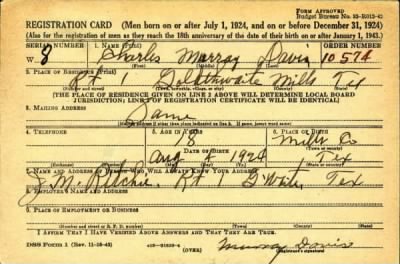 Form Approved
Budget Bureau No. 33-R015-42
REGISTRATION CARD (Men born on or after July 1, 1924, and on or before December 31, 1924)
(Also for the registration of men as they reach the 18th anniversary of the date of their birth on or after January 1, 1943.)
SERIAL NUMBER 1. NAME (Print) ORDER NUMBER
W 8 Charles Murray Davis 10574
(First) (Middle) (Last)
2. PLACE OF RESIDENCE (Print)
Rt 1 Goldthwaite Mills Tex
(Number and street) (Town) (County) (State)
[THE PLACE OF RESIDENCE GIVEN ON LINE 2 ABOVE WILL DETERMINE LOCAL BOARD
JURISDICTION; LINE 2 OF REGISTRATION CERTIFICATE WILL BE IDENTICAL]
3. MAILING ADDRESS
Same
4. TELEPHONE 5. AGE IN YEARS 6. PLACE OF BIRTH
18 Mills Co
DATE OF BIRTH (Town or county)
Aug 4 1924 Tex
(State or country)
7. NAME AND ADDRESS OF PERSON WHO WILL ALWAYS KNOW YOUR ADDRESS
J. M. Ritchie, Rt 1 G'Waite, Tex
8. EMPLOYER'S NAME AND ADDRESS
9. PLACE OF EMPLOYMENT OR BUSINESS
(Number and street or R. F. D. number) (Town) (County) (State)
I AFFIRM THAT I HAVE VERIFIED ABOVE ANSWERS AND THAT THEY ARE TRUE.
DSS Form 1 (OVER) Murray Davis
(Registrant's signature)